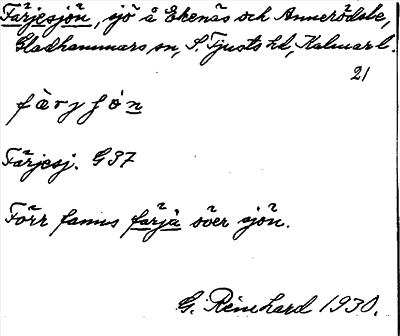 Färjesjön, sjö å Ekenäs och Annerödsbe,
Gladhammars sn, S. Tjusts hd, Kalmar l.
21
Färjesj. G 37
Förr fanns färja över sjön.
G. Reinhard 1930.